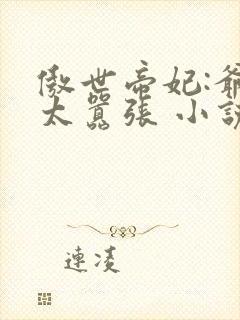 傲世帝妃:爺
太囂張 小說
連凌